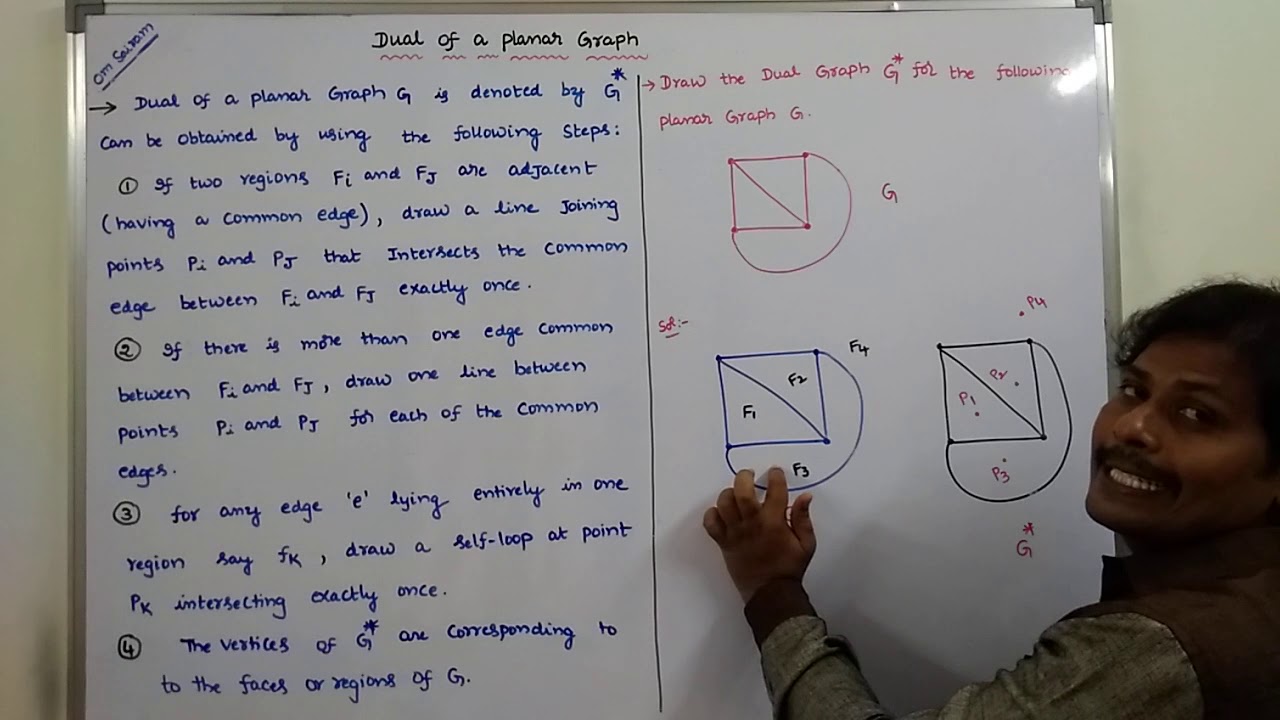 Om Sairam
Dual of a planar Graph
→ Dual of a planar Graph G is denoted by G*
can be obtained by using the following steps:
① If two regions Fi and FJ are adjacent
(having a common edge), draw a line Joining
points Pi and PJ that Intersects the common
edge between Fi and FJ exactly once.
② If there is more than one edge common
between Fi and FJ, draw one line between
points Pi and PJ for each of the common
edges.
③ for any edge 'e' lying entirely in one
region say fK, draw a self-loop at point
PK intersecting exactly once.
④ The vertices of G* are corresponding to
to the faces or regions of G.
→ Draw the Dual Graph G* for the following
planar Graph G.
G
Sol:-
F4
F2
F1
F3
P4
P2
P1
P3
G*